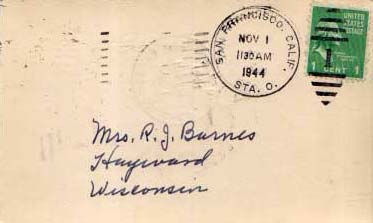 SAN FRANCISCO, CALIF.
NOV 1
11 30 AM
1944
STA. O.
UNITED STATES
POSTAGE
1
1 CENT 1
Mrs. R. J. Barnes
Hayward
Wisconsin